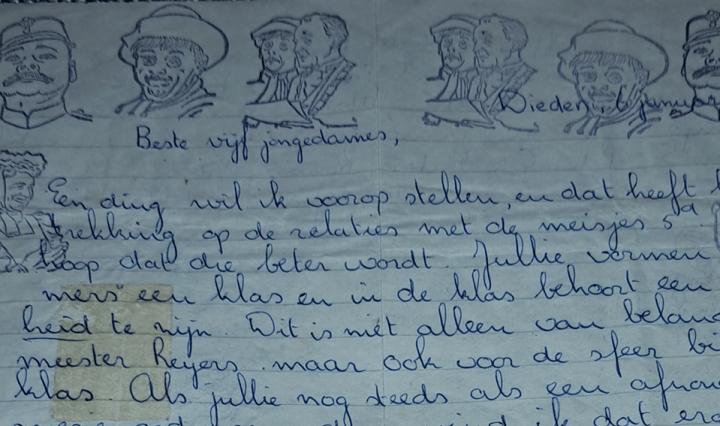 Wieden, 6 januar
Beste vijf jongedames,
Een ding wil ik voorop stellen, en dat heeft
trekking op de relaties met de meisjes 5a
hoop dat die beter wordt. Jullie vormen
mers" een klas en in de klas behoort een
heid te zijn. Dit is niét alleen van belang
meester Reyers maar ook voor de sfeer bi
klas. Als jullie nog steeds als een afron
ik dat er